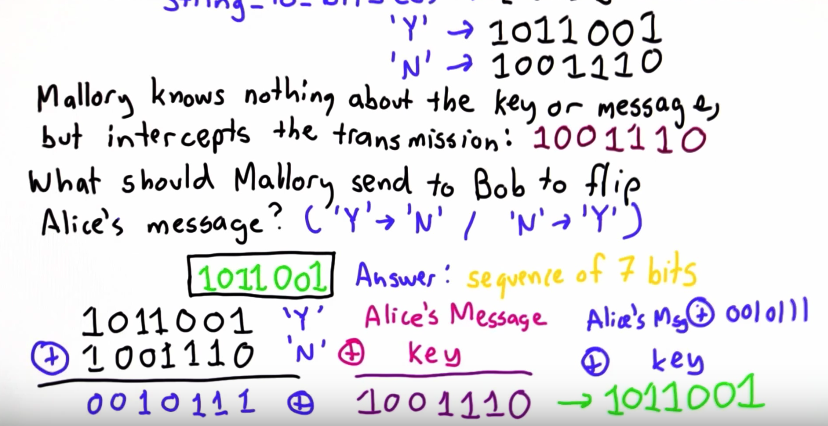 'Y' → 1011001
'N' → 1001110
Mallory knows nothing about the key or message,
but intercepts the transmission: 1001110
What should Mallory send to Bob to flip
Alice's message? ('Y'→'N' / 'N'→'Y')
1011001 Answer: sequence of 7 bits
1011001 'Y' Alice's Message Alice's Msg ⊕ 0010111
⊕ 1001110 'N' ⊕ key ⊕ key
0010111 ⊕ 1001110 → 1011001